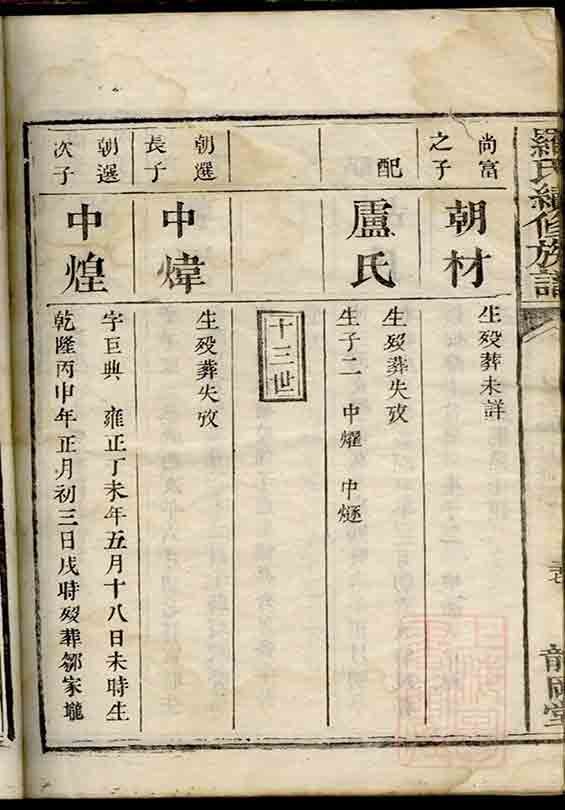 羅氏續修族譜
尚富
之子
朝材
生歿葬未詳
配
盧氏
生歿葬失攷
生子二 中燿 中燧
十三世
朝選
長子
中煒
生歿葬失攷
朝選
次子
中煌
字巨典 雍正丁未年五月十八日未時生
乾隆丙申年正月初三日戌時歿葬鄒家壠